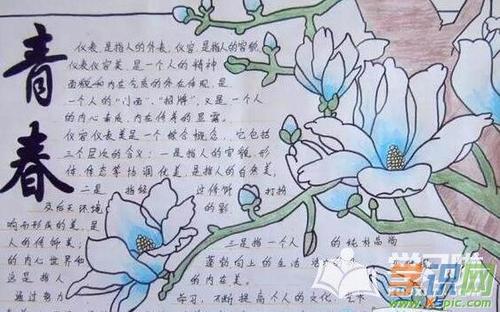 青春
仪表,是指人的外表,仪容,是指人的容貌,
仪表仪容美,是一个人的精神
面貌和内在气质的外在体现,是
一个人的“小画”,“招牌”,又是一个人
的内心素质,内在修养的显露。
仪容仪表美是一个综合概念,它包括
三个层次的含义:一是指人的容貌、形
体、体态等协调优美,是指人的自然美,
二是 指经 过修饰 打扮
及后天环境 的影
响而形成的美,是
人的修饰美; 三是指一个人 的纯朴品尚
的内心世界和 蓬勃向上的生活
这是指人 的内在美。
通过努力 学习,不断提高个人的文化、艺术
学识网
www.xspic.com